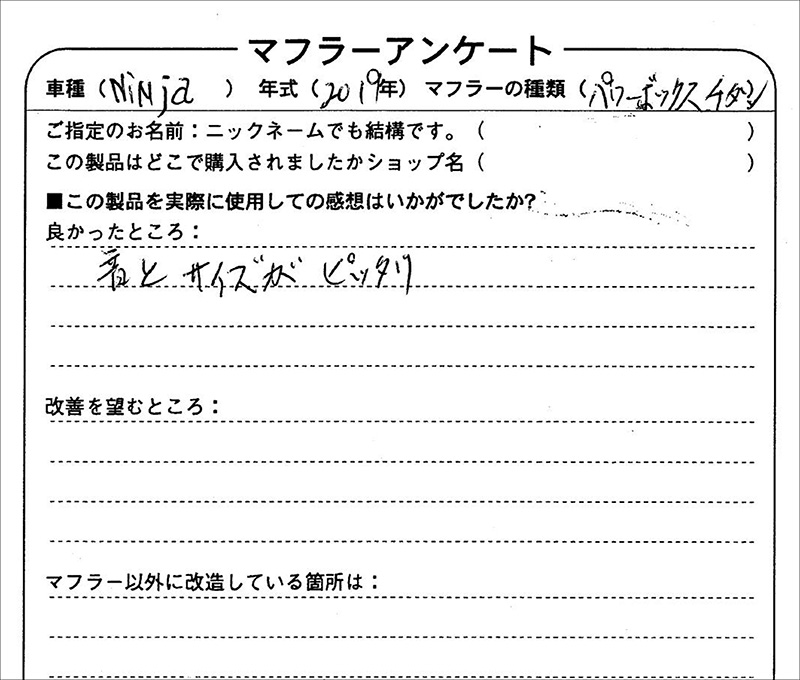 マフラーアンケート
車種（Ninja）年式（2019年）マフラーの種類（パワーボックスチタン
ご指定のお名前：ニックネームでも結構です。（　）
この製品はどこで購入されましたかショップ名（　）
■この製品を実際に使用しての感想はいかがでしたか？
良かったところ：
音とサイズがピッタリ
改善を望むところ：
マフラー以外に改造している箇所は：